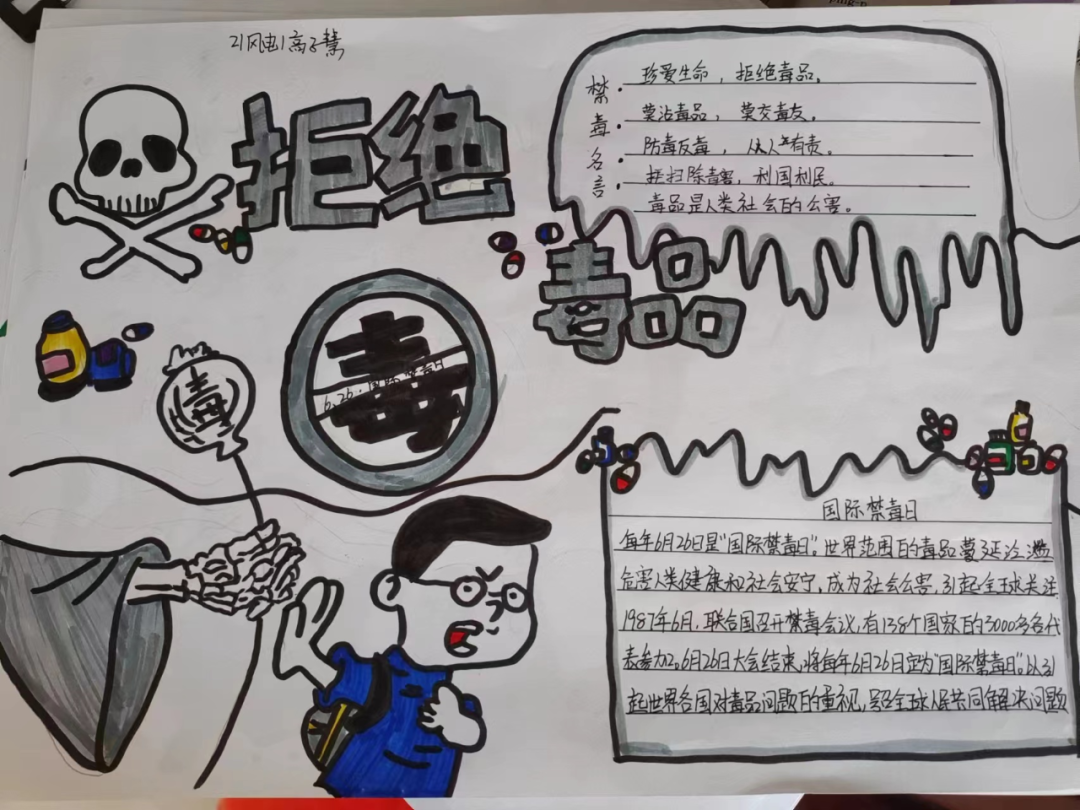 21风电1高子慧
拒绝
毒品
禁毒名言
珍爱生命，拒绝毒品。
莫沾毒品，莫交毒友。
防毒反毒，从人有责。
扫除毒害，利国利民。
毒品是人类社会的公害。
毒
毒
6.26·国际禁毒日
国际禁毒日
每年6月26日是"国际禁毒日"。世界范围的毒品蔓延泛滥
危害人类健康和社会安宁，成为社会公害，引起全球关注
1987年6月，联合国召开禁毒会议，有138个国家的3000多名代
表参加。6月26日大会结束，将每年6月26日定为"国际禁毒日"。以引
起世界各国对毒品问题的重视，号召全球人民共同解决问题